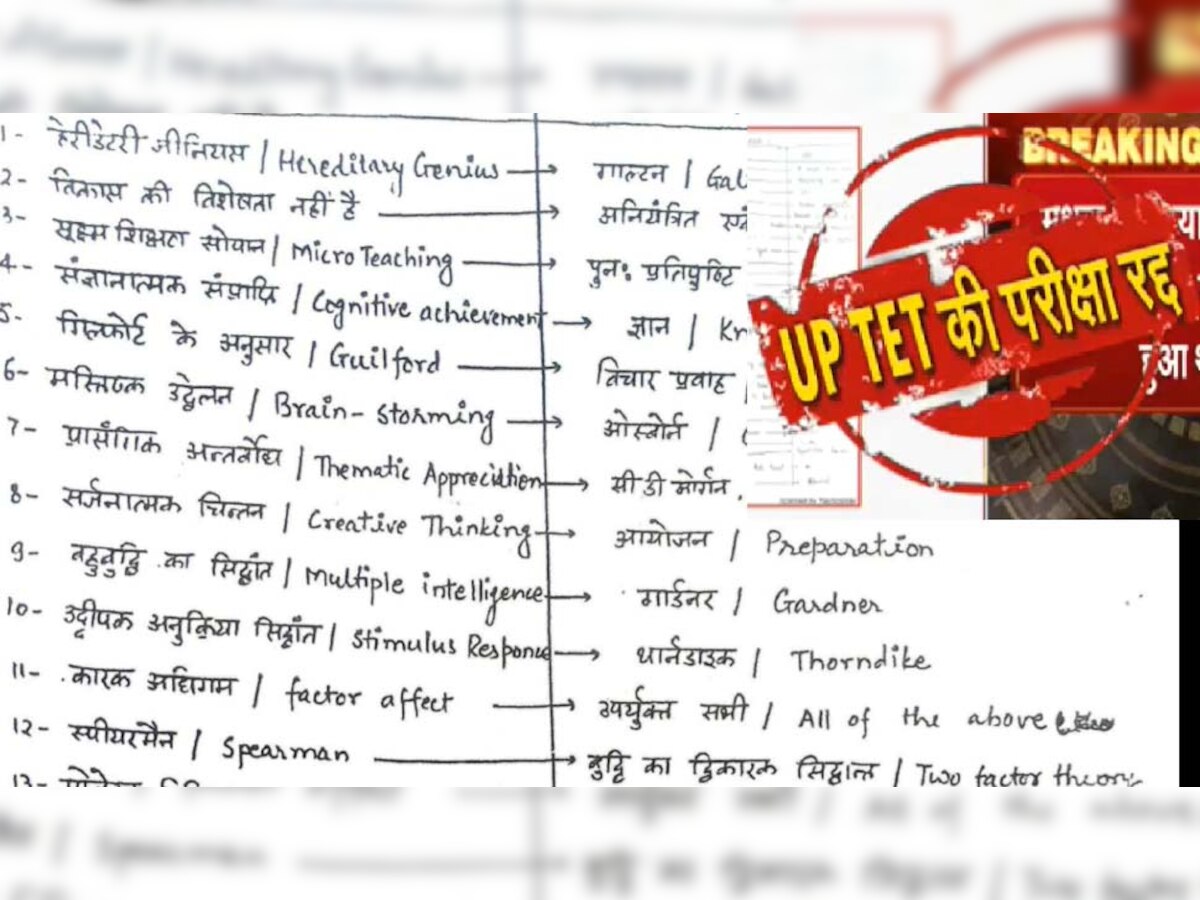 1- हेरीडेटरी जीनियस / Hereditary Genius → गाल्टन / Gal
2- विकास की विशेषता नहीं है → अनियंत्रित
3- सूक्ष्म शिक्षण सोपान / Micro Teaching → पुनः प्रतिपुष्टि
4- संज्ञानात्मक संप्राप्ति / Cognitive achievement → ज्ञान / Kn
5- गिल्फोर्ट के अनुसार / Guilford → विचार प्रवाह /
6- मस्तिष्क उद्वेलन / Brain-storming → ओस्बोर्न /
7- प्रासंगिक अन्तर्बोध / Thematic Appreciation → सी डी मोर्गन
8- सर्जनात्मक चिन्तन / Creative Thinking → आयोजन / Preparation
9- बहुबुद्धि का सिद्धांत / Multiple intelligence → गार्डनर / Gardner
10- उद्दीपक अनुक्रिया सिद्धांत / Stimulus Response → थार्नडाइक / Thorndike
11- कारक अधिगम / factor affect → उपर्युक्त सभी / All of the above
12- स्पीयरमैन / Spearman → बुद्धि का द्विकारक सिद्धान्त / Two factor theory
13-
BREAKING
UP TET की परीक्षा रद्द
हुआ